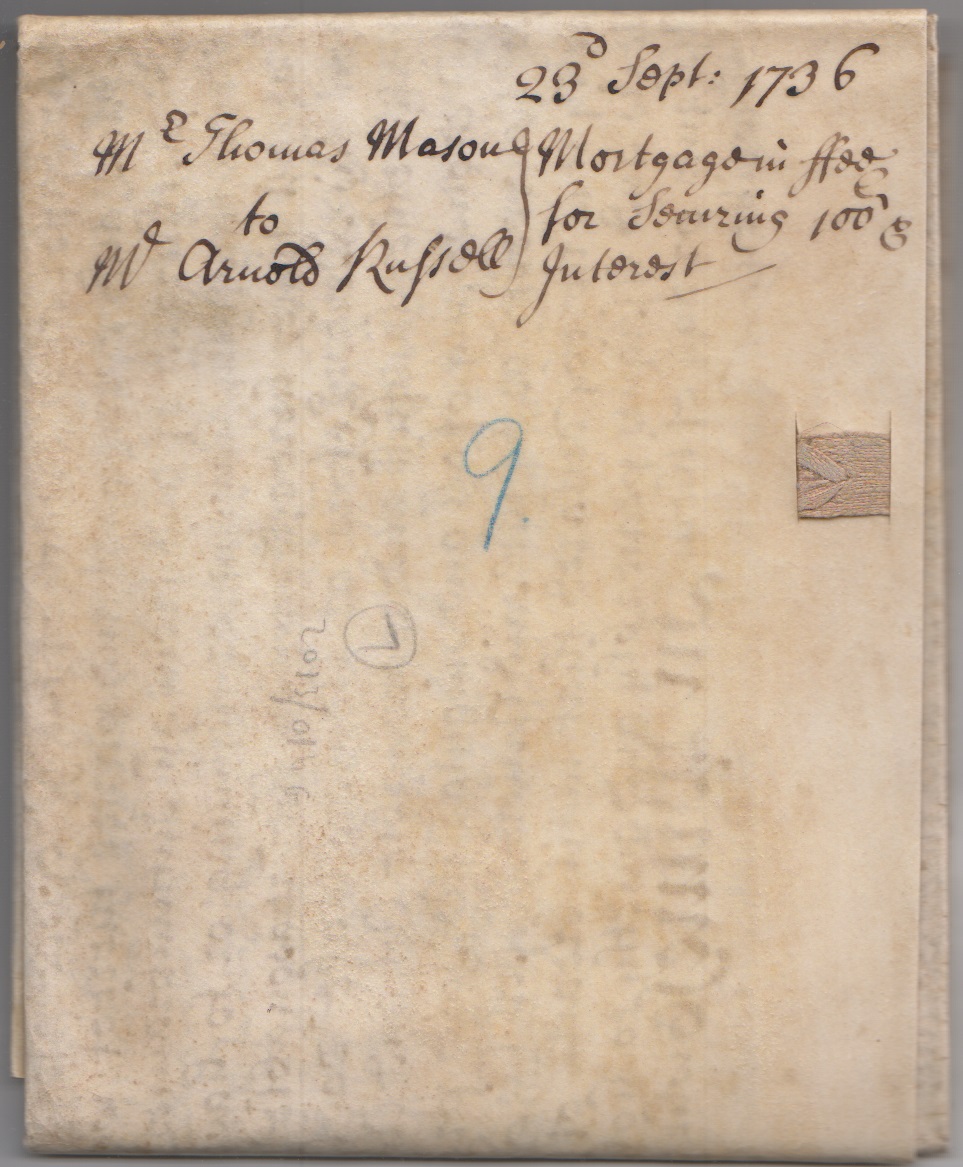 23d Sept: 1736
Mr Thomas Mason
to
Mr Arnold Russell
Mortgage in ffee
for Securing 100l &
Interest
9.
L